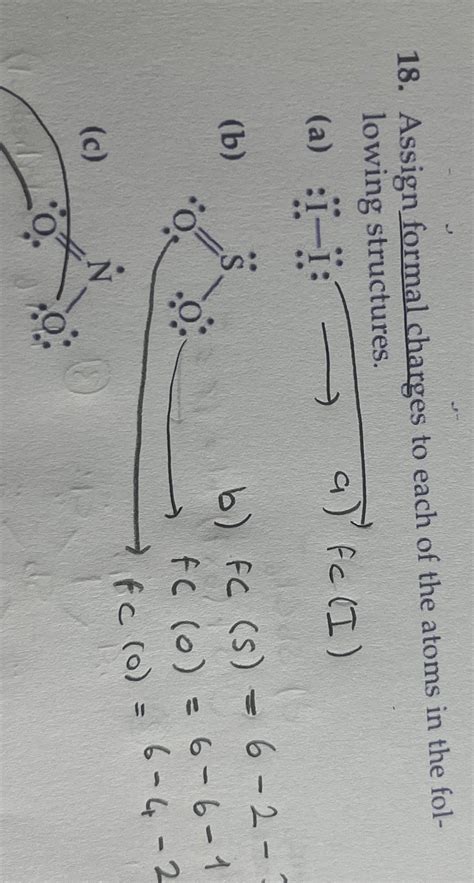 18. Assign formal charges to each of the atoms in the fol-
lowing structures.
(a) :I—I: a) fc (I)
(b) S O O b) fc (S) = 6 - 2 -
fc (O) = 6 - 6 - 1
fc (O) = 6 - 4 - 2
(c) N O O